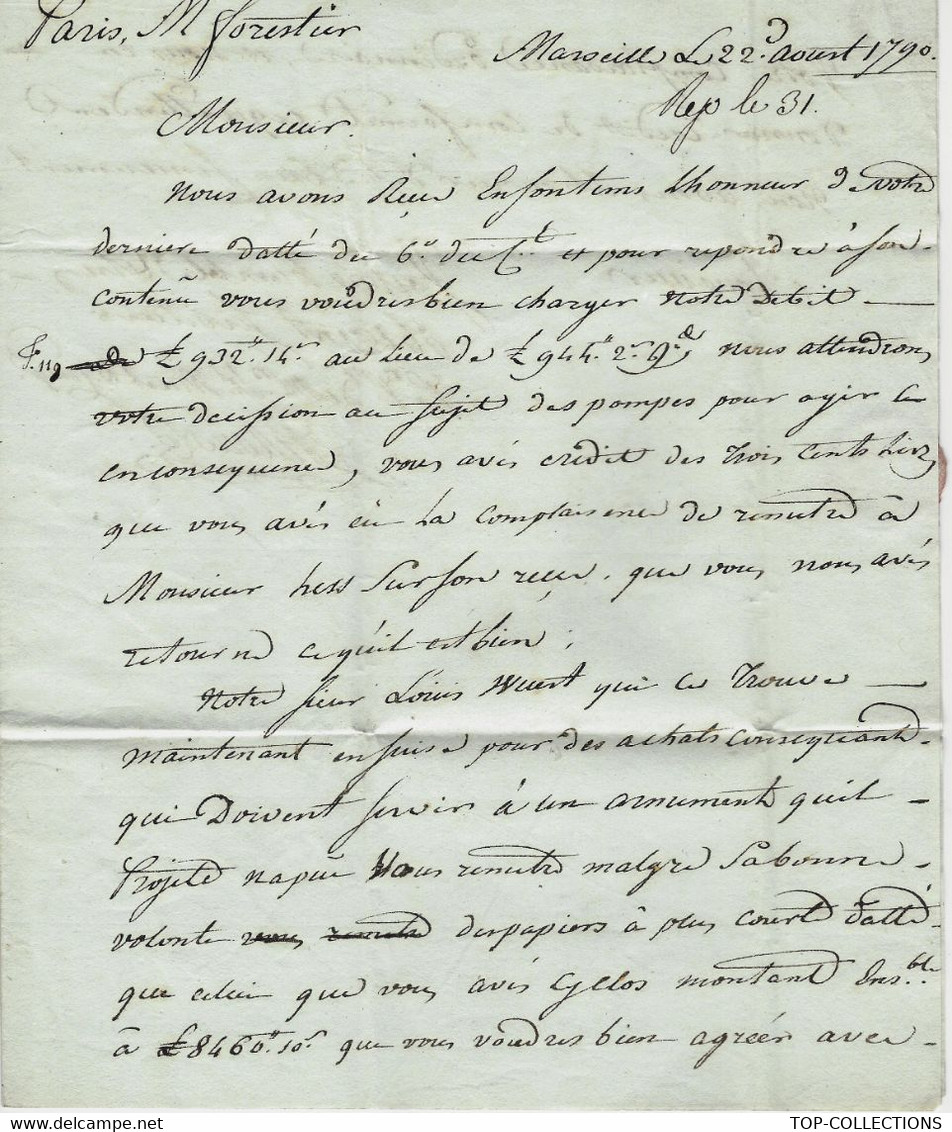 Paris, M forestier
Marseille Le 22.d aoust 1790.
Rep le 31.
Monsieur.
Nous avons Reçeu Ensontems Lhonneur de votre
derniere datté du 6.e du Ct. et pour repondre à son
contenû vous voudres bien charger Notre Debit
F. 119 de £ 932" 14s au lieu de £ 944" 2s 9d nous attendrons
votre decission au sujet des pompes pour agir en
en consequence, vous avés credit des trois Cents Livz
que vous avés eû La Complaisence de remettre à
Monsieur hess Sur son reçeu, que vous nous avés
retourné ce qu'il est bien,
Notre sieur Louis Wuest qui ce trouve
maintenant en suise pour des achats Consequand
qui Doivent servir à un armument qu'il
Projete na pue Vous remettre malgre Sa bonne
volonte vous remettre des papiers à plus court datté
que celui que vous avés Cyclos montant Ens.ble
à £ 8460" 10s que vous voudres bien agréer avec
TOP-COLLECTIONS